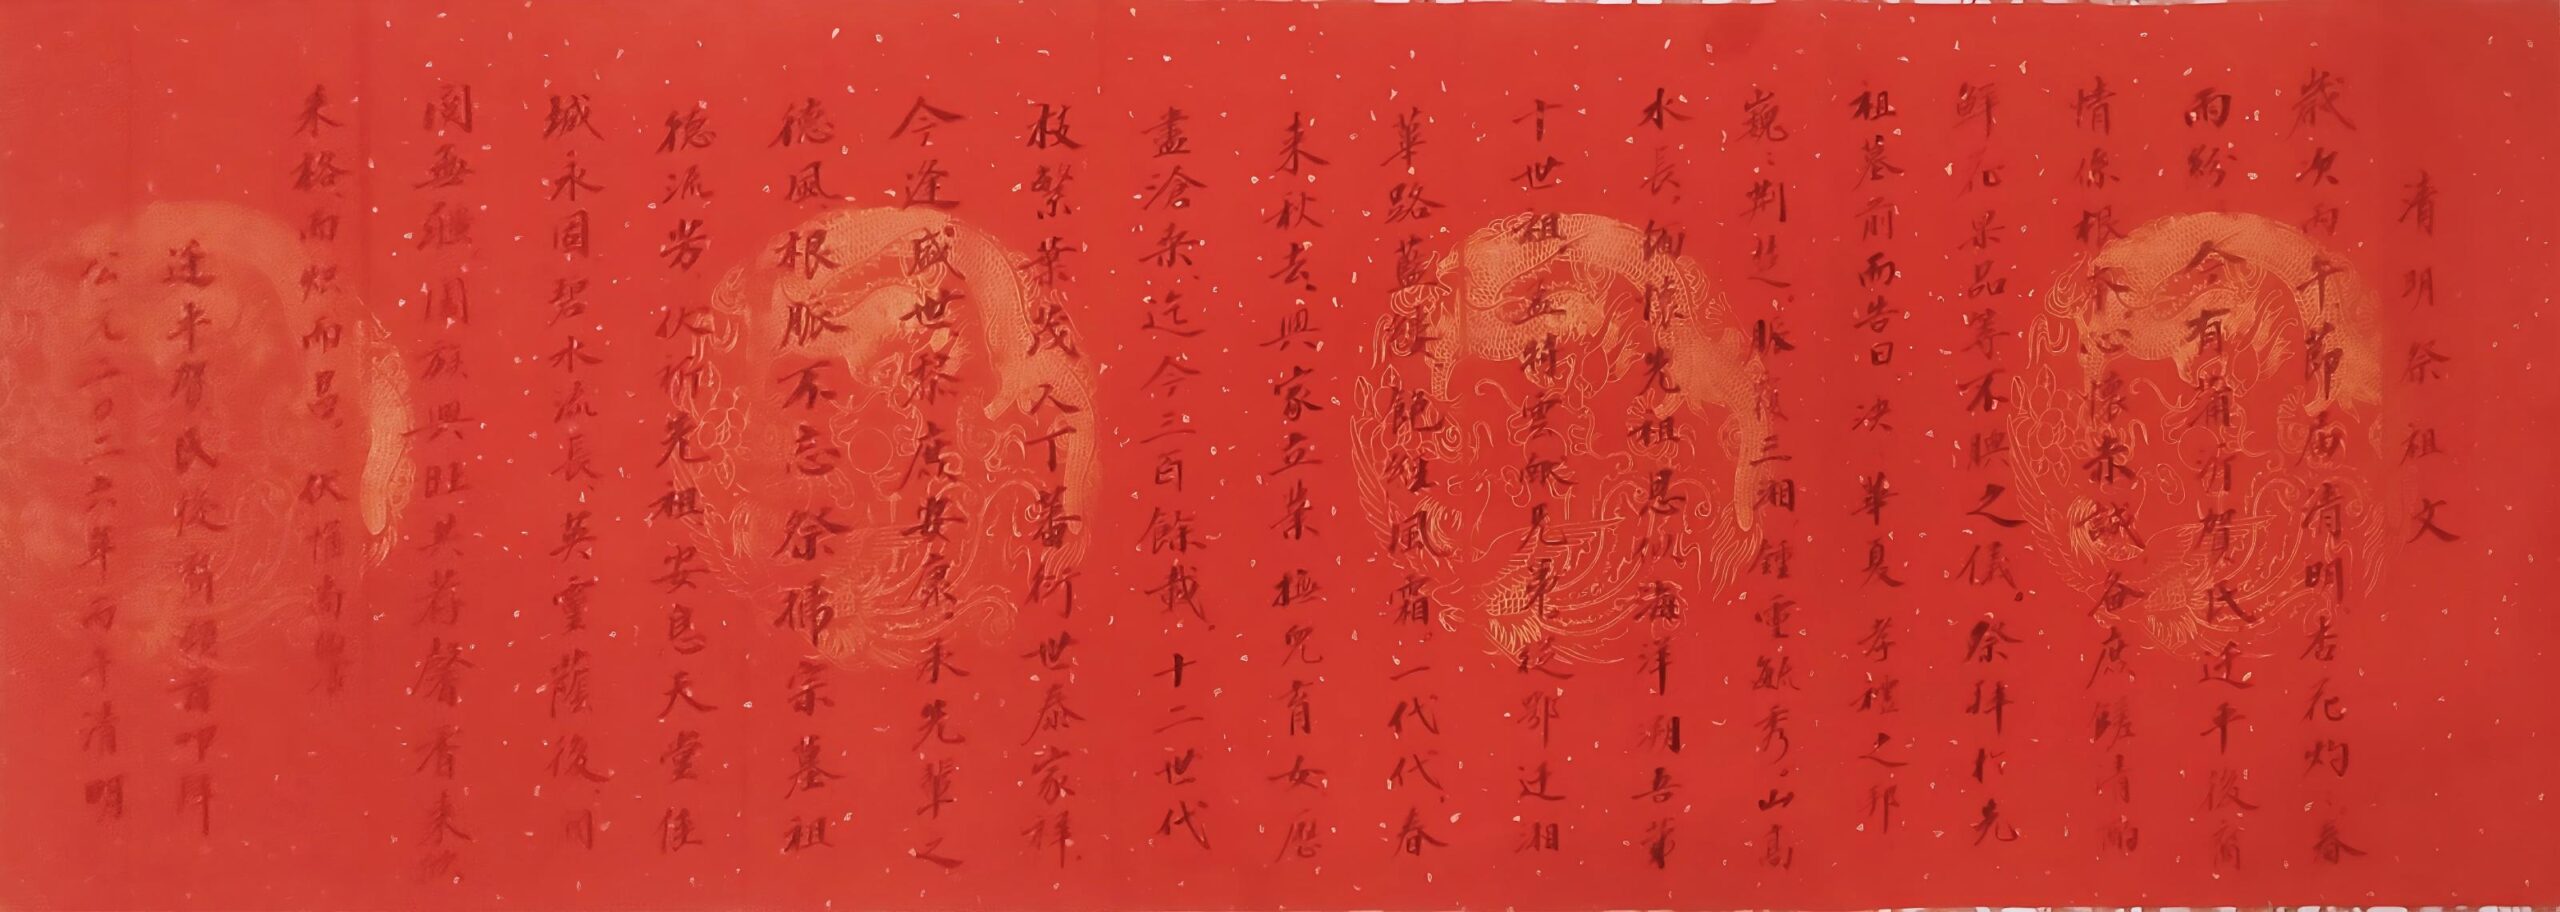 清明祭祖文
歲次丙午節届清明杏花灼灼春
雨紛紛今有蒲沂賀氏迁平後裔
情係根本心懷赤誠备庶饈清酌
鮮花果品等不腆之儀。祭拜扵先
祖墓前而告曰决决華夏孝禮之邦
巍巍荆楚脈一三湘鍾靈毓秀山高
水長緬懷先祖恩似海洋溯吾第
十世祖孟 雲 兄弟從鄂迁湘
華路藍縷飽經風霜。一代代春
来秋去興家立業撫兒育女歷
盡滄桒迄今三百餘載。十二世代
枝繁葉茂人丁蕃衍世泰家祥
今逢盛世黎庶安康承先輩之
德風根脈不忘祭掃宗墓祖
德流芳伏祈先祖安息天堂佳
城永固碧水流長英靈蔭後
閡無 闔族興旺共荐馨香来
来格而炽而昌伏惟尚饗
迁平賀氏後裔頓首叩拜
公元二〇二六年丙午清明